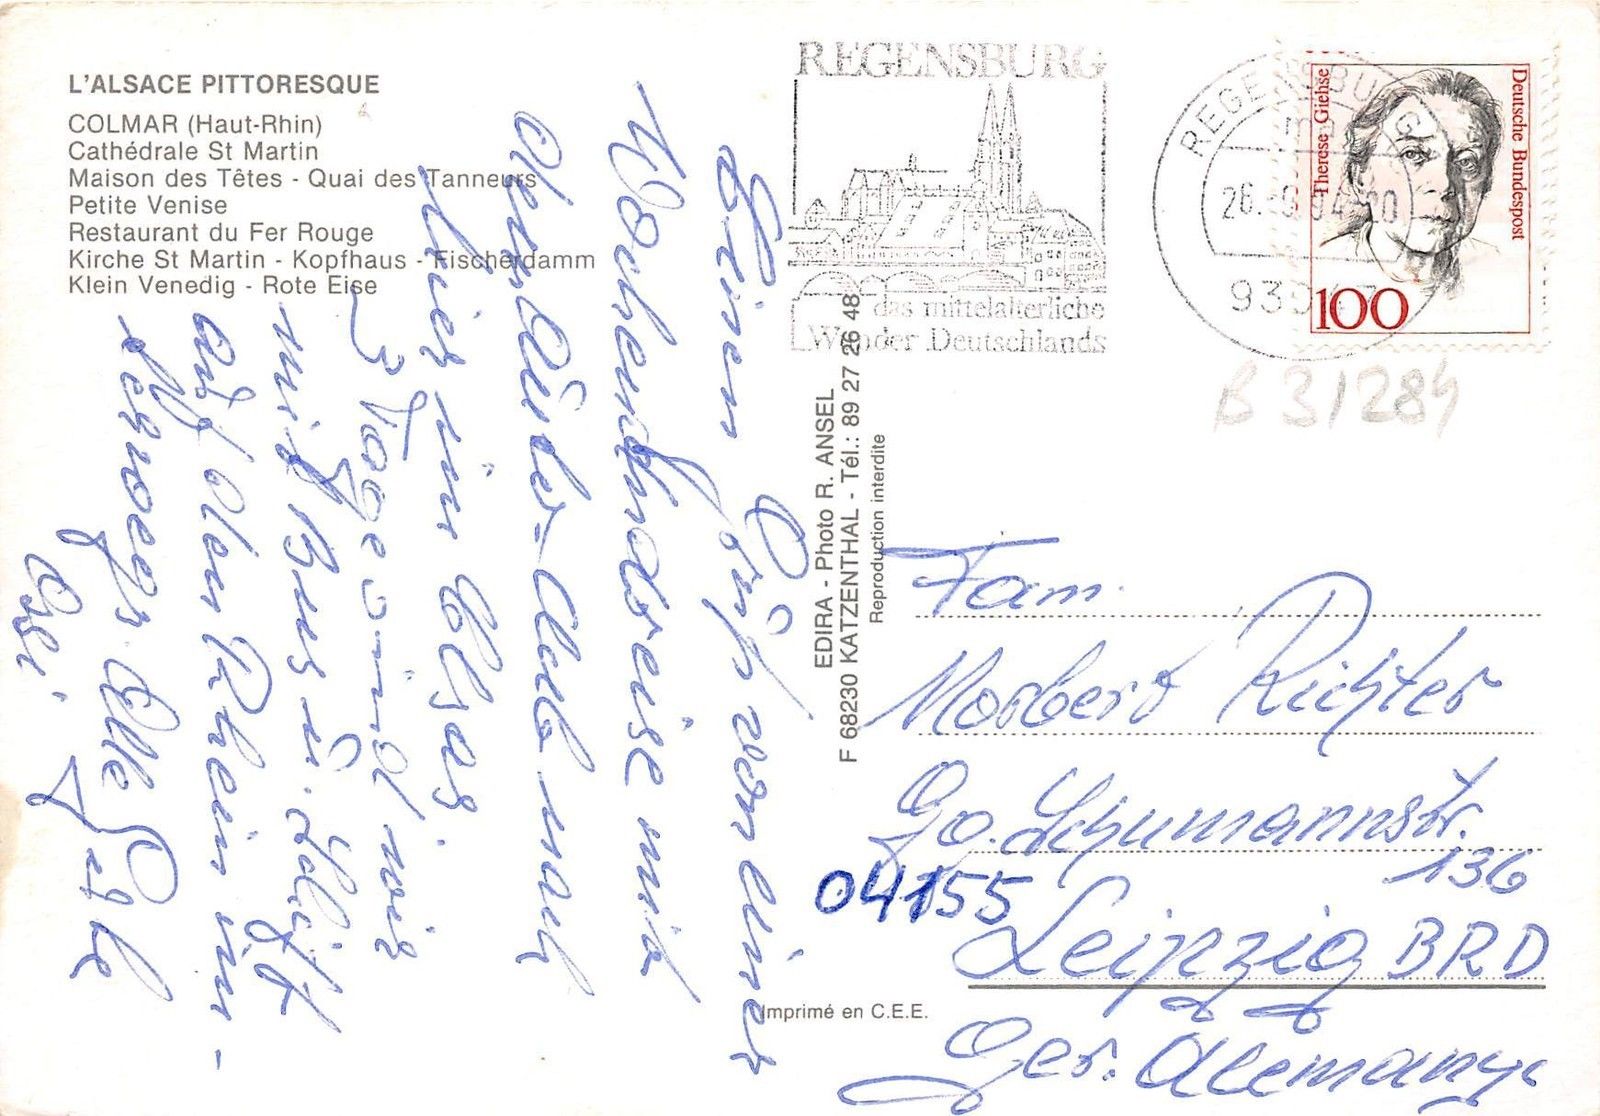 L'ALSACE PITTORESQUE
COLMAR (Haut-Rhin)
Cathédrale St Martin
Maison des Têtes - Quai des Tanneurs
Petite Venise
Restaurant du Fer Rouge
Kirche St Martin - Kopfhaus - Fischerdamm
Klein Venedig - Rote Eise
Einen Gruß von einer
Wochenendreise mit
dem Club nach
hier im Elsas.
3 Tage sind wir
mit Bus u. Schiff
auf den Rhein un-
terwegs. Alle
REGENSBURG
das mittelalterliche
Wunder Deutschlands
REGENSBURG
26.
Therese Giehse
Deutsche Bundespost
100
B 31284
EDIRA - Photo R. ANSEL
F 68230 KATZENTHAL - Tél.: 89 27 26 48
Reproduction interdite
Fam.
Norbert Richter
Go. Schumannstr.
136
04155
Leipzig BRD
Ger. Alemanya
Imprimé en C.E.E.